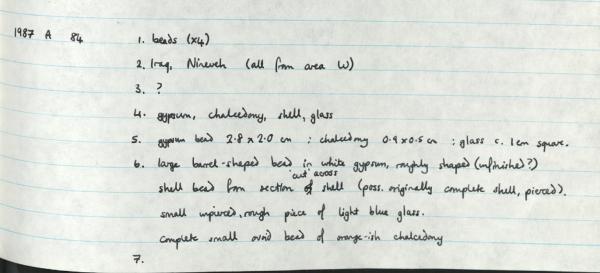 1987 A 84 1. beads (x4)
2. Iraq, Nineveh (all from area W)
3. ?
4. gypsum, chalcedony, shell, glass
5. gypsum bead 2.8 x 2.0 cm ; chalcedony 0.9 x 0.5 cm ; glass c. 1cm square.
6. large barrel-shaped bead in white gypsum, roughly shaped (unfinished?)
shell bead from section 'cut' across of shell (poss. originally complete shell, pierced).
small unpierced, rough piece of light blue glass.
complete small ovoid bead of orange-ish chalcedony
7.